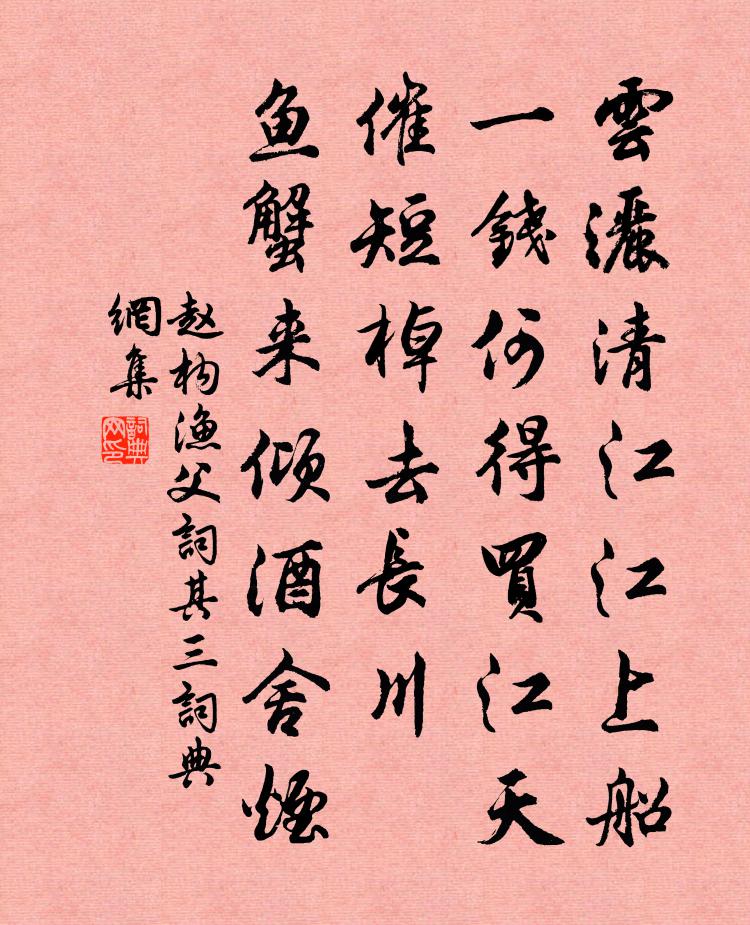 雲灑清江江上船
一錢何得買江天
催短棹去長川
鱼蟹来倾酒舍煙
赵构漁父詞其三詞典
網集
詞典網印